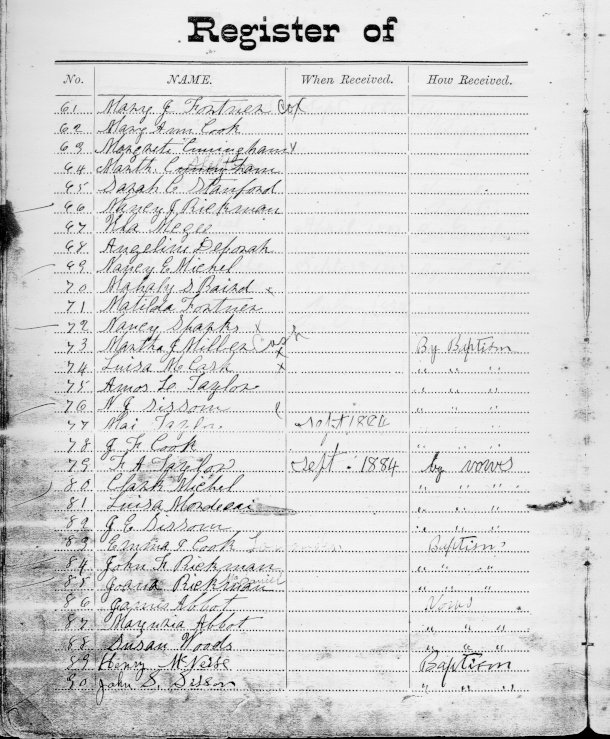 Register of
No. NAME. When Received. How Received.
61 Mary J Fortner Cox
62 Mary Ann Cook
63 Margret Cuningham x
64 Marth Cuningham
65 Sarah C Stanford
66 Nancy J Rickman
67
68 Angeline Deborah
69 Nancy E Michel
70 Mahaly S Baird x
71 Matilda Fortner
72 Nancy Sparks x
73 Martha J Miller Cook By Baptism
74 Luisa McCash x " " "
75 Amos Le Taylor " " "
76 N J Sissom " " "
77 Mai Taylor Sept 1884 " " "
78 J F Cook " " "
79 F A Taylor Sept. 1884 by vows
80 Clark Michel " " "
81 Luisa Mordecai " " "
82 J E Sissom " " "
83 Emma J Cook Baptism
84 John F Rickman " " "
85 Joana Rickman " " "
86 Abbot Vows
87 Abbot " " "
88 Susan Woods " " "
89 Henry McNeese Baptism
90 John S. Sisson " " "